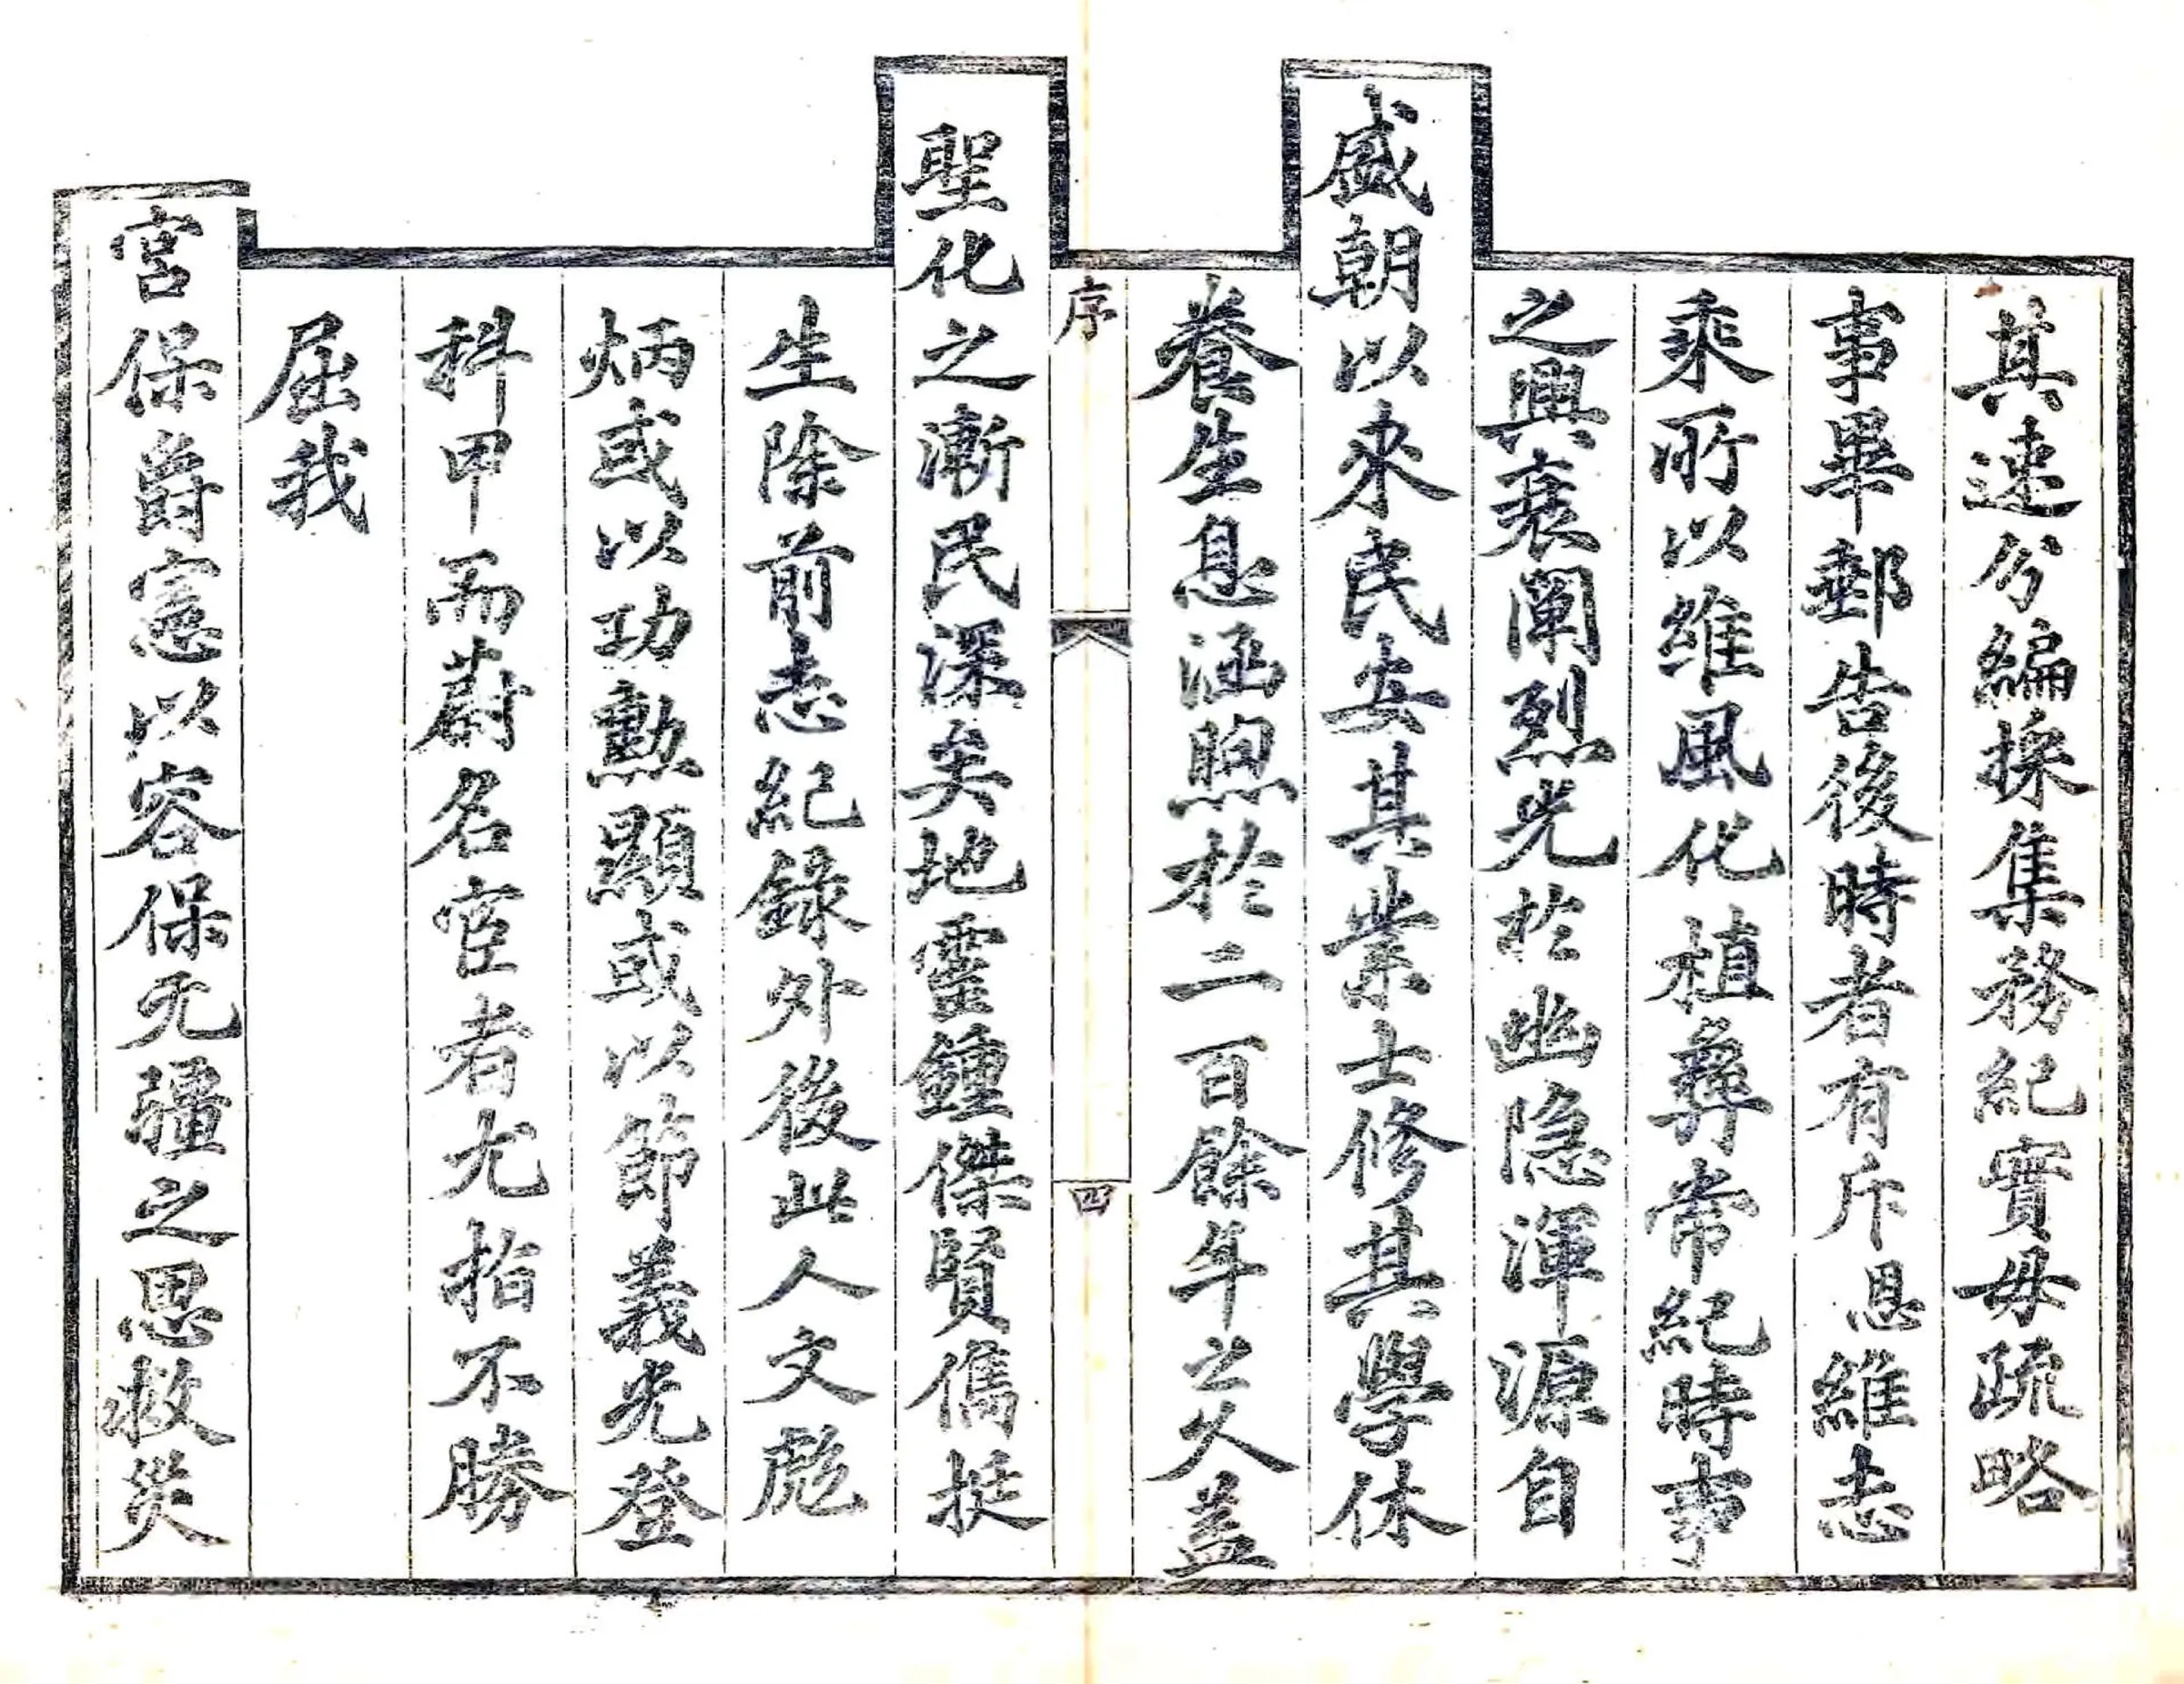 其速分編採集務紀實毋疏略
事畢郵告後時者有斥恩維志
乘所以維風化植彝常紀時事
之興衰闡烈光於幽隐渾源自
盛朝以来民安其業士修其學休
養生息涵煦於二百餘年之久盖
序
四
聖化之漸民深矣地靈鍾傑賢儁挺
生除前志紀錄外後此人文彪
炳或以功勲顯或以節義光登
科甲而蔚名宦者尤指不勝
屈我
宮保爵憲以容保无疆之思救災